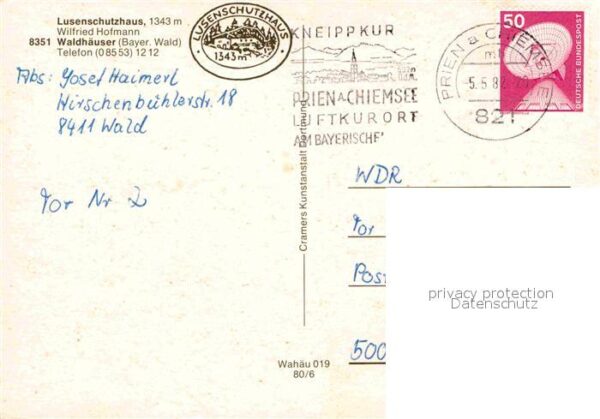 Lusenschutzhaus, 1343 m
Wilfried Hofmann
8351 Waldhäuser (Bayer. Wald)
Telefon (0 85 53) 12 12
LUSENSCHUTZHAUS
1343 m
KNEIPPKUR
PRIEN A. CHIEMSEE
LUFTKURORT
AM BAYERISCHE
PRIEN a CHIEMSEE
5.5.8
821
50
DEUTSCHE BUNDESPOST
Abs: Josef Haimerl
Hirschenbühlerstr. 18
8411 Wald
Tor Nr 2
Cramers Kunstanstalt Dortmund
WDR
Tor
Post
500
privacy protection
Datenschutz
Wahäu 019
80/6